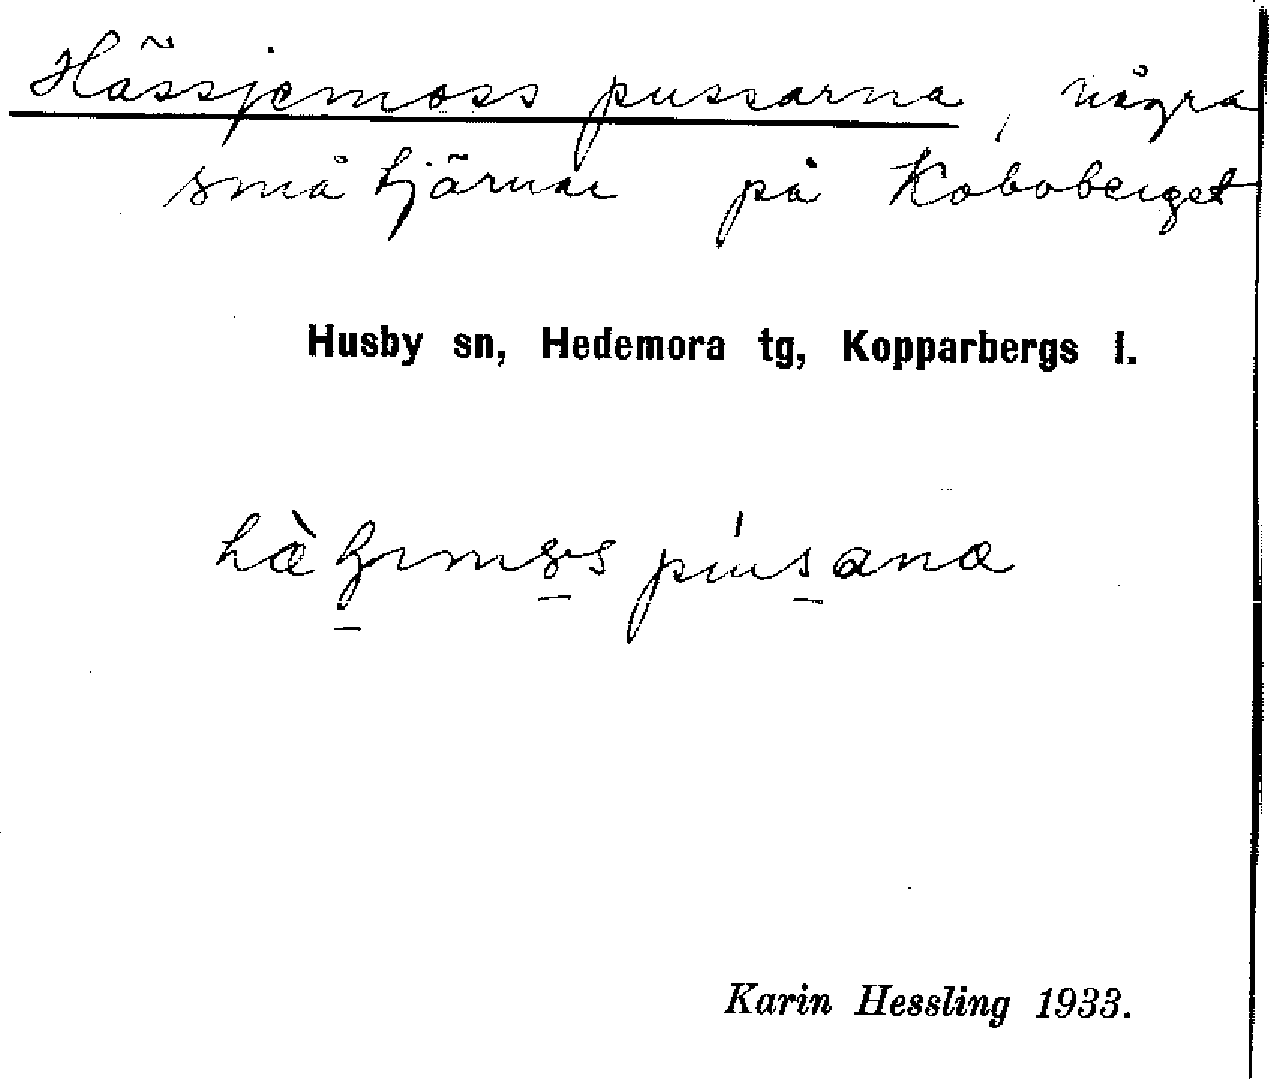 Hässjemoss pussarna, några
små tjärnar på Koboberget
Husby sn, Hedemora tg, Kopparbergs l.
Karin Hessling 1933.